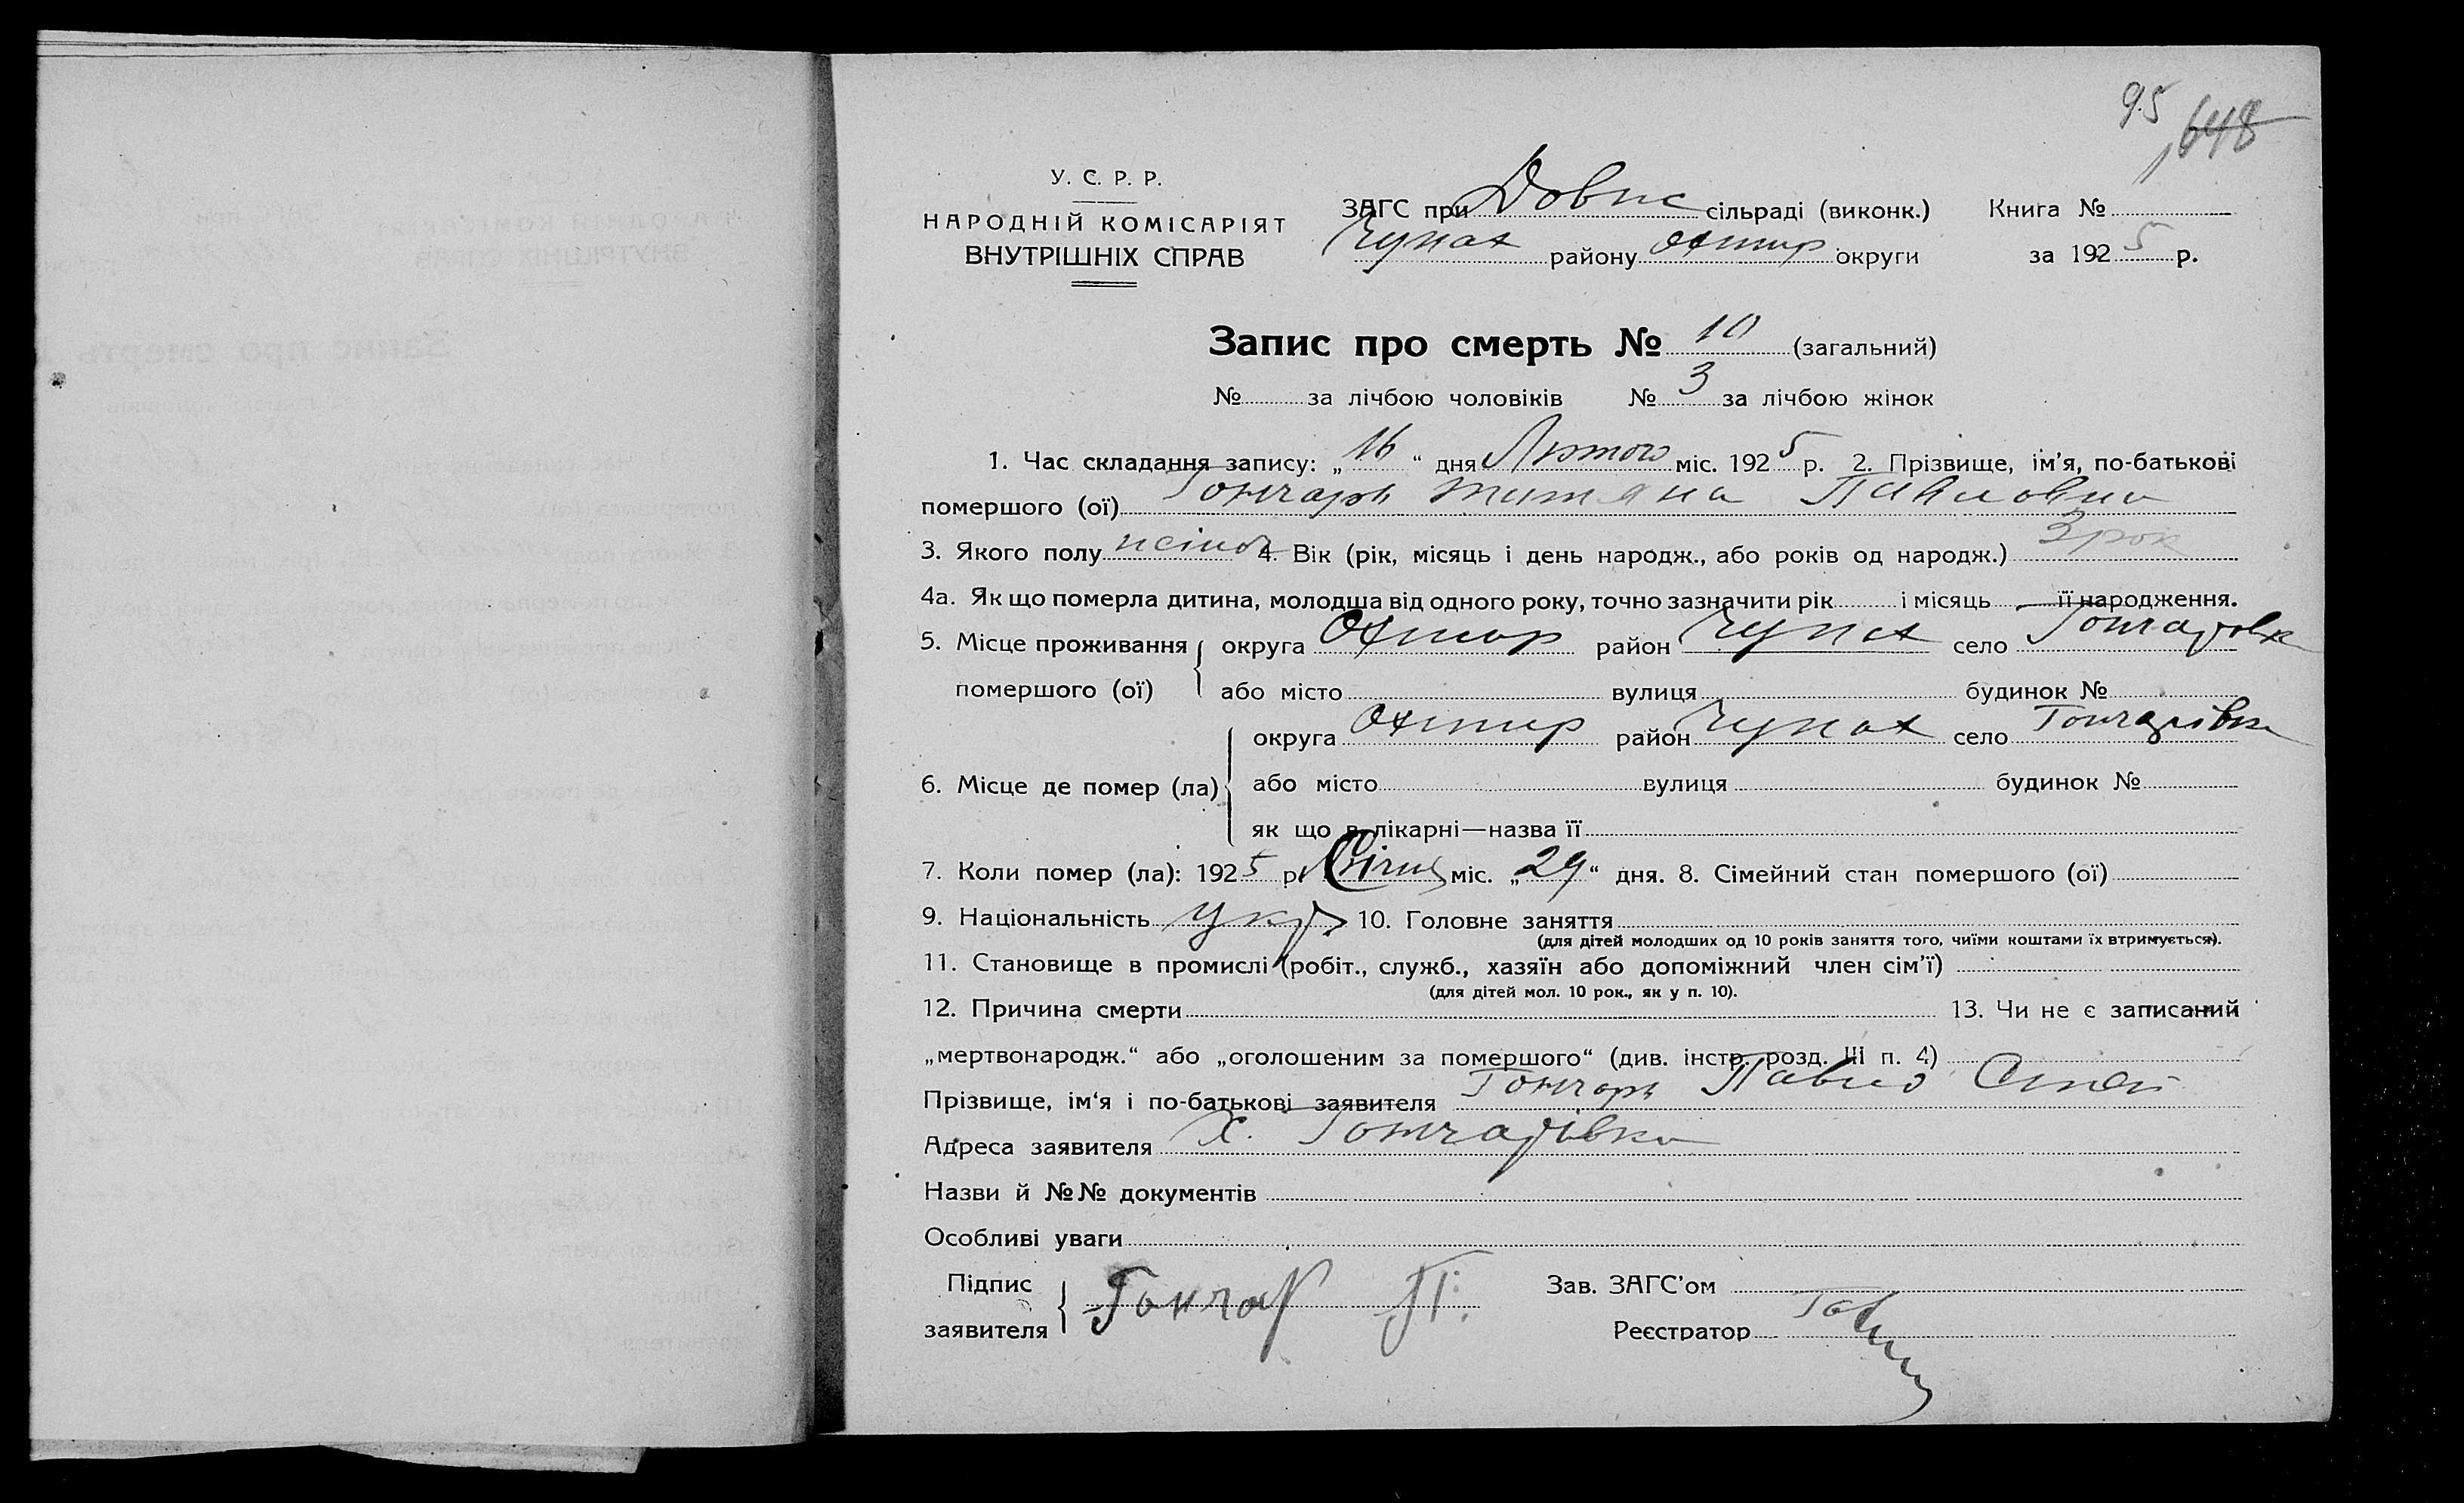 95
648
У. С. Р. Р.
НАРОДНІЙ КОМІСАРІЯТ
ВНУТРІШНІХ СПРАВ
ЗАГС при Довж сільраді (виконк.) Книга №
Чупах району Охтир округи за 1925 р.
Запис про смерть № 10 (загальний)
№ за лічбою чоловіків № 3 за лічбою жінок
1. Час складання запису: „16“ дня Лютого міс. 1925 р. 2. Прізвище, ім'я, по-батькові
помершого (ої) Гончарь Титяна Павловна
3. Якого полу жіноч 4. Вік (рік, місяць і день народж., або років од народж.) 3 рок
4а. Як що померла дитина, молодша від одного року, точно зазначити рік і місяць її народження.
5. Місце проживання помершого (ої) округа Охтир район Чупах село Гончарівк
або місто вулиця будинок №
6. Місце де помер (ла) округа Охтир район Чупах село Гончарівка
або місто вулиця будинок №
як що в лікарні—назва її
7. Коли помер (ла): 1925 р. Січня міс. „29“ дня. 8. Сімейний стан помершого (ої)
9. Національність укр. 10. Головне заняття
(для дітей молодших од 10 років заняття того, чиїми коштами їх втримується).
11. Становище в промислі (робіт., служб., хазяїн або допоміжний член сім'ї)
(для дітей мол. 10 рок., як у п. 10).
12. Причина смерти 13. Чи не є записаний
„мертвонародж.“ або „оголошеним за помершого“ (див. інстр. розд. III п. 4)
Прізвище, ім'я і по-батькові заявителя Гончарь Павло
Адреса заявителя х. Гончарівка
Назви й №№ документів
Особливі уваги
Підпис заявителя Гончар П. Зав. ЗАГС'ом
Реєстратор